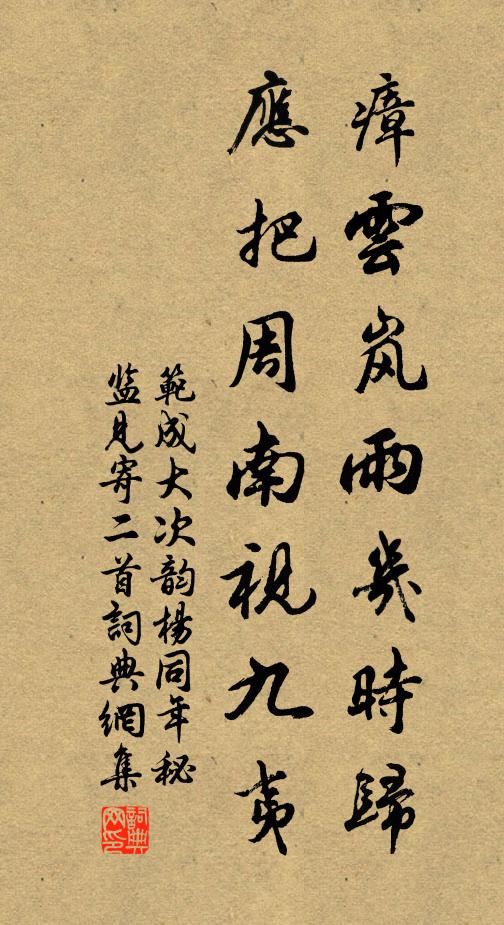 瘴雲岚雨幾時歸
應把周南視九夷
範成大次韵楊同年秘
监見寄二首詞典網集
詞典网印